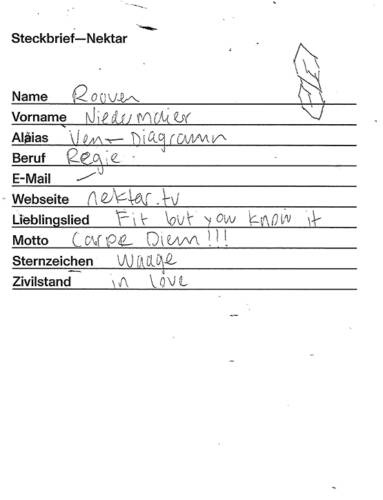 Steckbrief—Nektar
Name Rooven
Vorname Niedermaier
Alaias Ven-Diagramm
Beruf Regie
E-Mail —
Webseite nektar.tv
Lieblingslied Fit but you know it
Motto Carpe Diem!!!
Sternzeichen Waage
Zivilstand in love